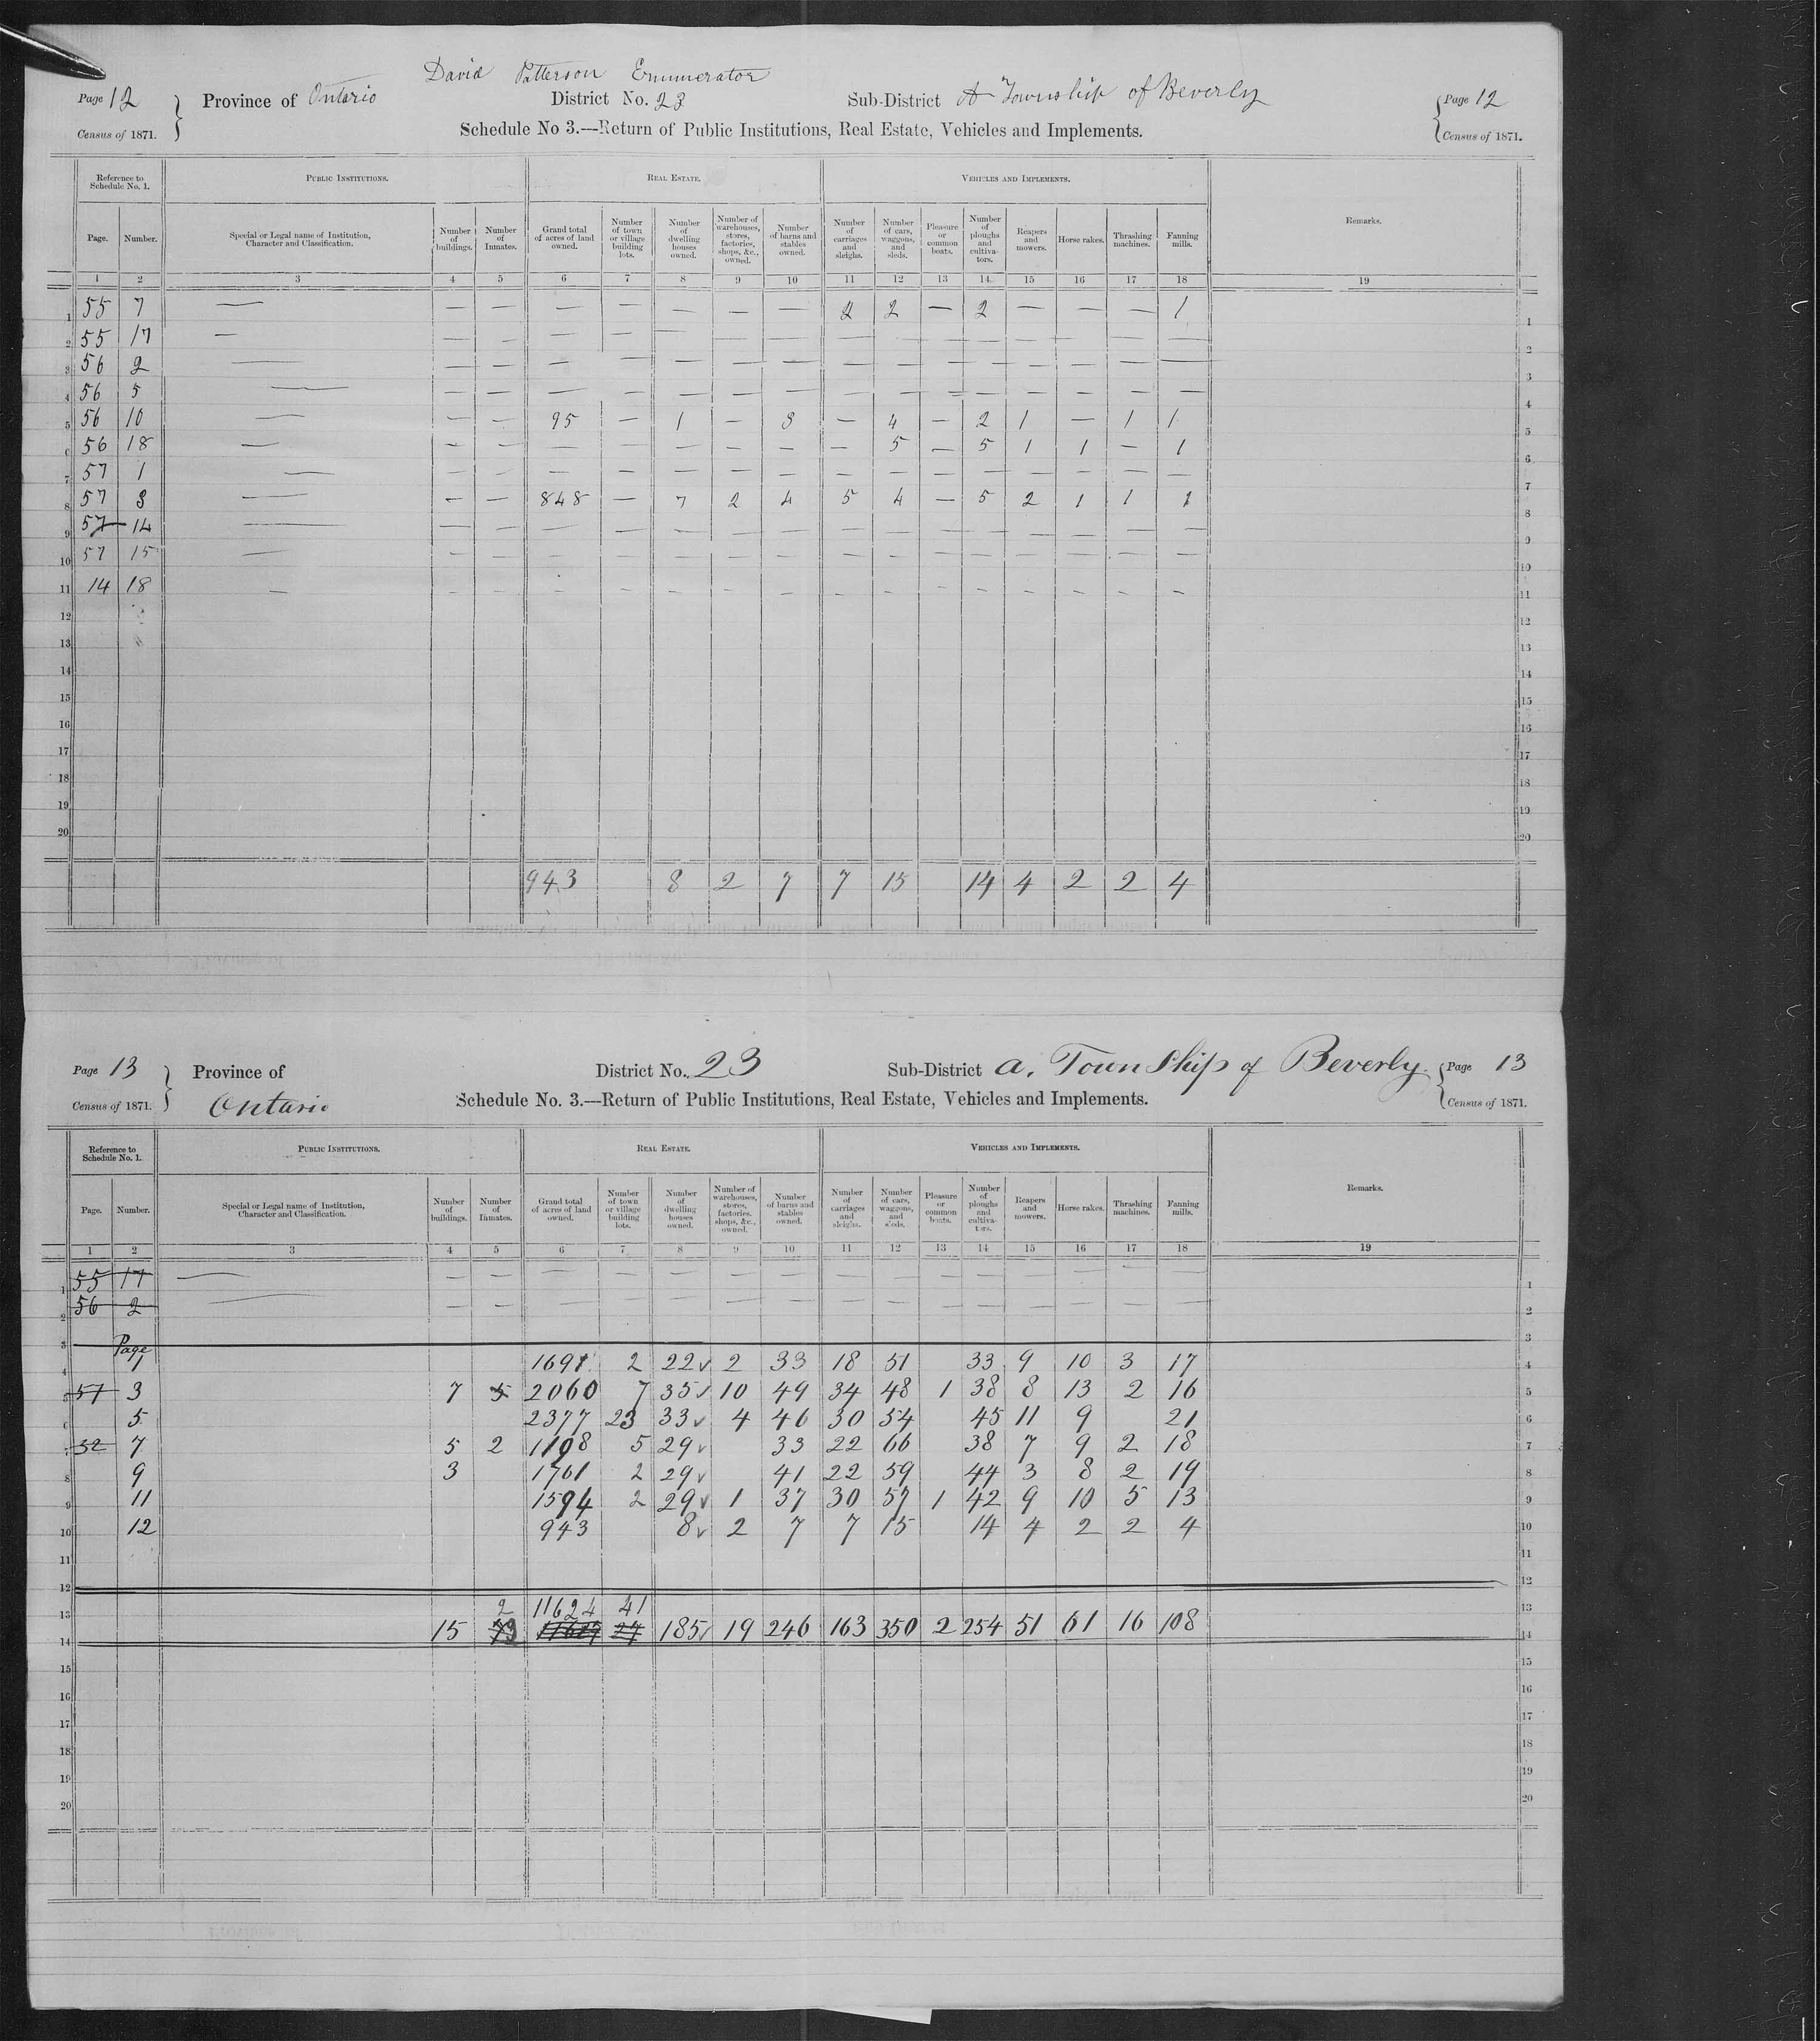 David Patterson Enumerator
Page 12 Province of Ontario District No. 23 Sub-District A Township of Beverly Page 12
Census of 1871. Schedule No 3.—Return of Public Institutions, Real Estate, Vehicles and Implements. Census of 1871.
Reference to Schedule No. 1. PUBLIC INSTITUTIONS. REAL ESTATE. VEHICLES AND IMPLEMENTS. Remarks.
Page. Number. Special or Legal name of Institution, Character and Classification. Number of buildings. Number of Inmates. Grand total of acres of land owned. Number of town or village building lots. Number of dwelling houses owned. Number of warehouses, stores, factories, shops, &c., owned. Number of barns and stables owned. Number of carriages and sleighs. Number of cars, waggons, and sleds. Pleasure or common boats. Number of ploughs and cultivators. Reapers and mowers. Horse rakes. Thrashing machines. Fanning mills.
1 2 3 4 5 6 7 8 9 10 11 12 13 14 15 16 17 18 19
1 55 7 — — — — — — — — 2 2 — 2 — — — 1 1
2 55 17 — — — — — — — — — — — — — — — — 2
3 56 2 — — — — — — — — — — — — — — — — 3
4 56 5 — — — — — — — — — — — — — — — — 4
5 56 10 — — — 95 — 1 — 3 — 4 — 2 1 — 1 1 5
6 56 18 — — — — — — — — — 5 — 5 1 1 — 1 6
7 57 1 — — — — — — — — — — — — — — — — 7
8 57 3 — — — 848 — 7 2 4 5 4 — 5 2 1 1 1 8
9 57 14 — — — — — — — — — — — — — — — — 9
10 57 15 — — — — — — — — — — — — — — — — 10
11 14 18 — — — — — — — — — — — — — — — — 11
12 12
13 13
14 14
15 15
16 16
17 17
18 18
19 19
20 20
943 8 2 7 7 15 14 4 2 2 4
Page 13 Province of Ontario District No. 23 Sub-District a. Township of Beverly Page 13
Census of 1871. Schedule No. 3.—Return of Public Institutions, Real Estate, Vehicles and Implements. Census of 1871.
Reference to Schedule No. 1. PUBLIC INSTITUTIONS. REAL ESTATE. VEHICLES AND IMPLEMENTS. Remarks.
Page. Number. Special or Legal name of Institution, Character and Classification. Number of buildings. Number of Inmates. Grand total of acres of land owned. Number of town or village building lots. Number of dwelling houses owned. Number of warehouses, stores, factories, shops, &c., owned. Number of barns and stables owned. Number of carriages and sleighs. Number of cars, waggons, and sleds. Pleasure or common boats. Number of ploughs and cultivators. Reapers and mowers. Horse rakes. Thrashing machines. Fanning mills.
1 2 3 4 5 6 7 8 9 10 11 12 13 14 15 16 17 18 19
1 55 17 — — — — — — — — — — — — — — — — 1
2 56 2 — — — — — — — — — — — — — — — — 2
3 Page 3
1 1691 2 22 2 33 18 51 33 9 10 3 17 4
57 3 7 5 2060 7 35 10 49 34 48 1 38 8 13 2 16 5
5 2377 23 33 4 46 30 54 45 11 9 21 6
52 7 5 2 1198 5 29 33 22 66 38 7 9 2 18 7
8 9 3 1761 2 29 41 22 59 44 3 8 2 19 8
9 11 1594 2 29 1 37 30 57 1 42 9 10 5 13 9
10 12 943 8 2 7 7 15 14 4 2 2 4 10
11 11
12 12
13 2 11624 41 13
14 15 185 19 246 163 350 2 254 51 61 16 108 14
15 15
16 16
17 17
18 18
19 19
20 20